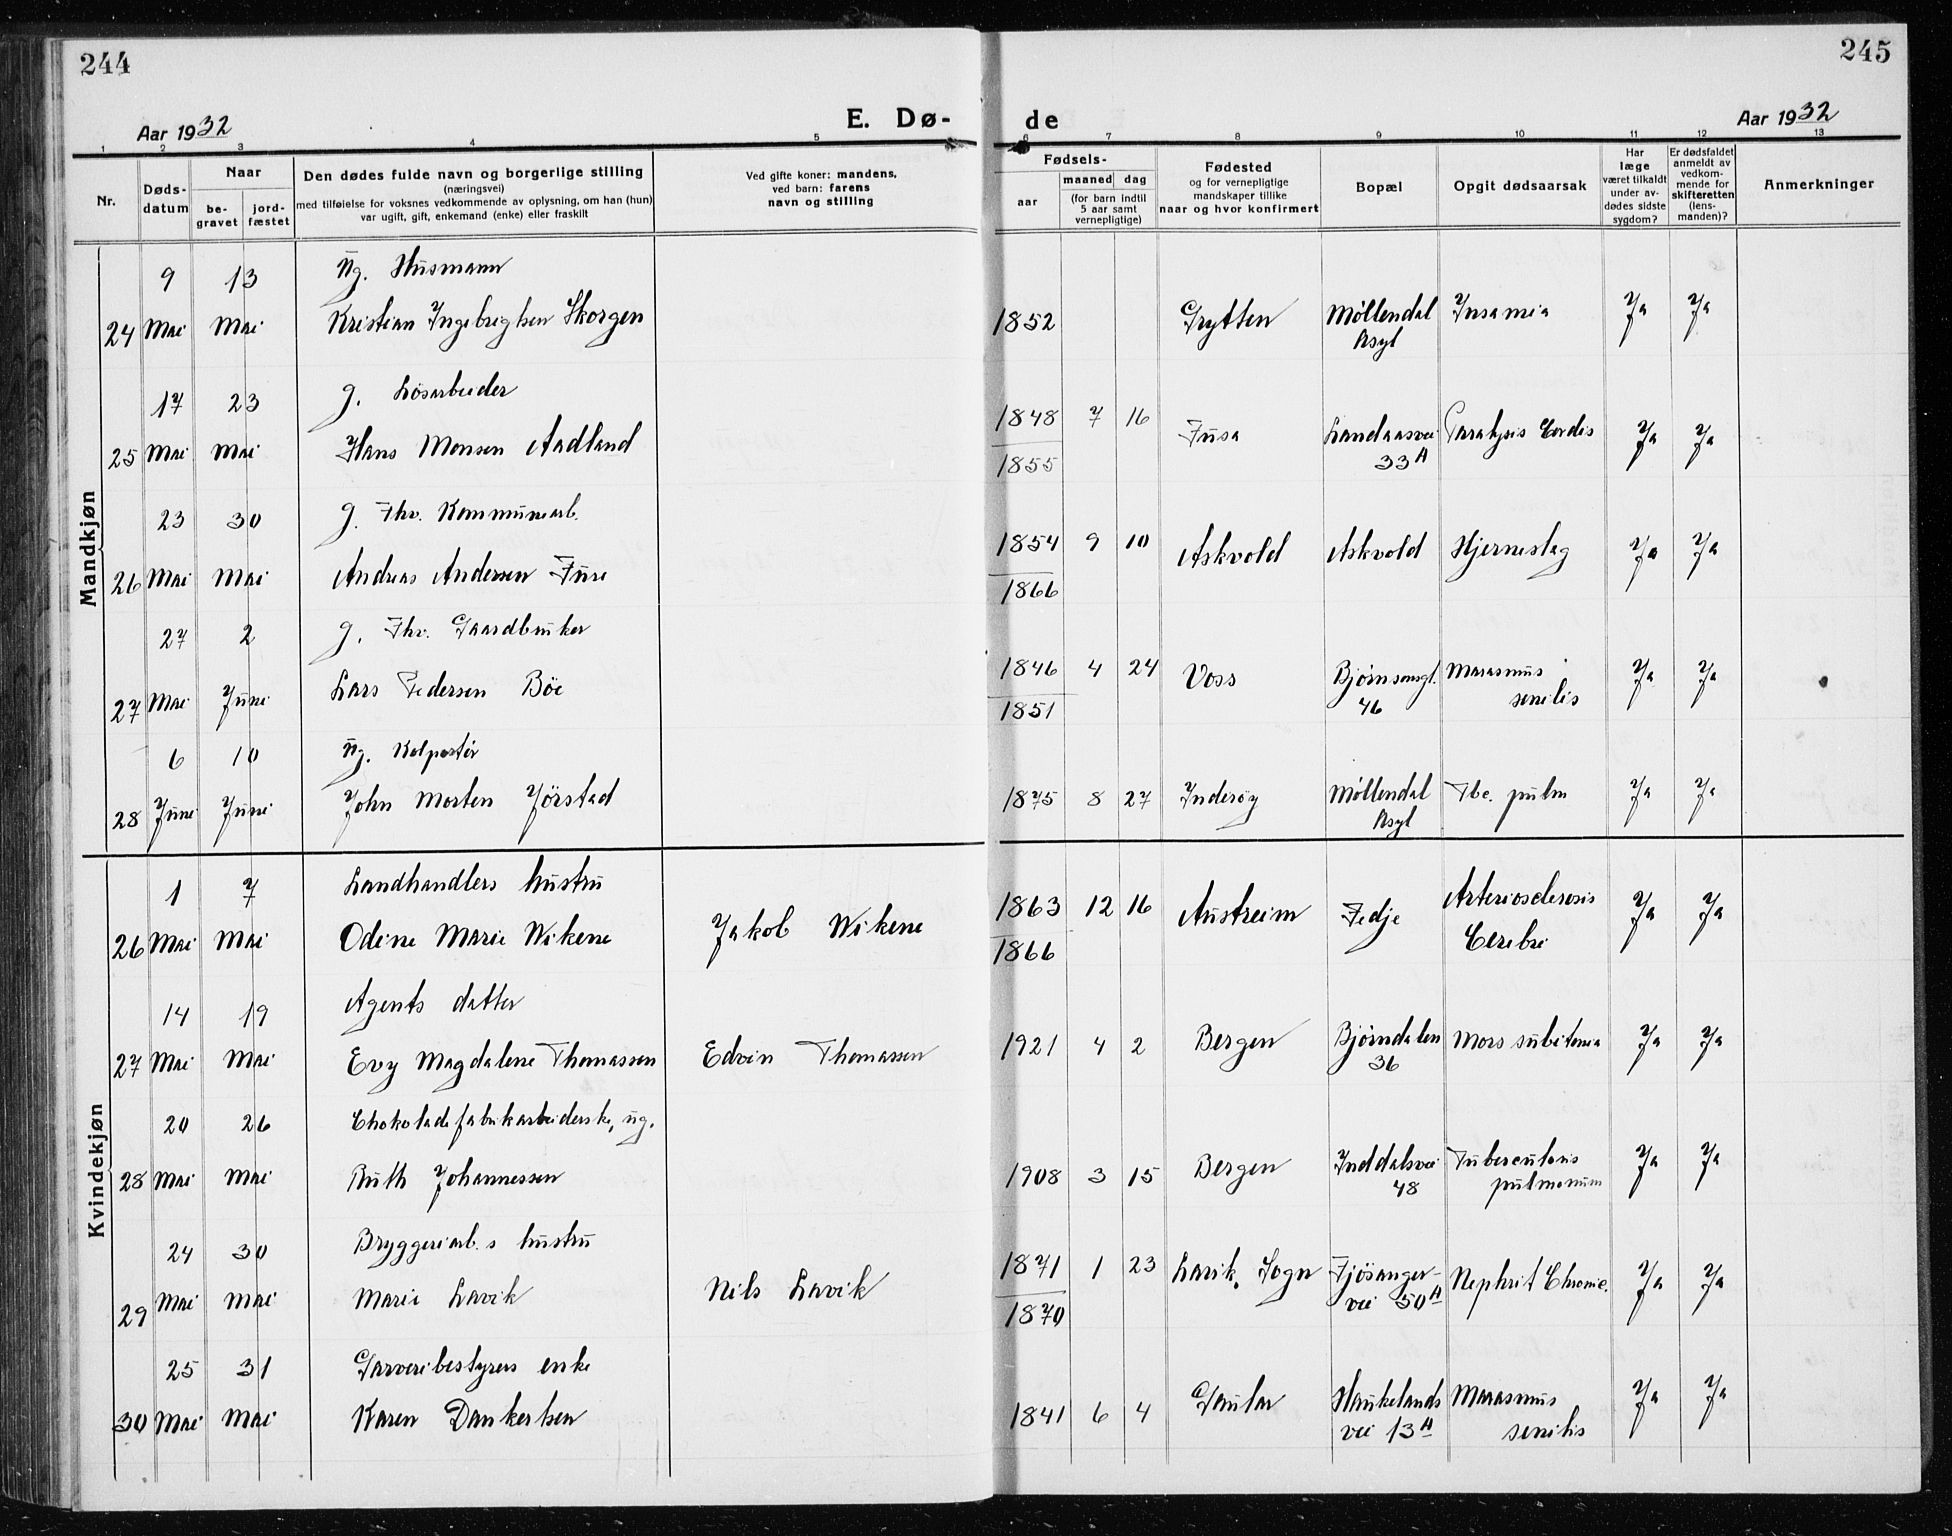 244
245
Aar 1932
E. Dø-
de
Aar 1932
1 2 3 4 5 6 7 8 9 10 11 12 13
Nr.
Døds-
datum
Naar
be-
gravet
jord-
fæstet
Den dødes fulde navn og borgerlige stilling
(næringsvei)
med tilføielse for voksnes vedkommende av oplysning, om han (hun)
var ugift, gift, enkemand (enke) eller fraskilt
Ved gifte koner: mandens,
ved barn: farens
navn og stilling
Fødsels-
aar
maaned dag
(for barn indtil
5 aar samt
vernepligtige)
Fødested
og for vernepligtige
mandskaper tillike
naar og hvor konfirmert
Bopæl
Opgit dødsaarsak
Har
læge
været tilkaldt
under av-
dødes sidste
sygdom?
Er dødsfaldet
anmeldt av
vedkom-
mende for
skifteretten
(lens-
manden)?
Anmerkninger
Mandkjøn
9 13 ug. Husmann
24 Mai Mai Kristian Ingebrigtsen Skorgen 1852 Grytten Møllendal Insamia Ja Ja
Asyl
17 23 g. Løsarbeider
1848 7 16
25 Mai Mai Hans Monsen Aadland Fusa Landaasvei Paralysis Cordis Ja Ja
1855 33 A
23 30 g. Fhv. Kommunearb.
1854 9 10 Askvold Askvold Hjerneslag Ja Ja
26 Mai Mai Andreas Andersen Fure
1866
27 2 g. Fhv. Gaardbruker
1846 4 24 Voss Bjørnsonsgt. Marasmus Ja Ja
27 Mai Juni Lars Pedersen Bøe
1851 46 senilis
6 10 ug. Kolportør
28 Juni Juni John Morten Jørstad 1875 8 27 Inderøy Møllendal Tbc. pulm Ja Ja
Asyl
Kvindekjøn
1 7 Landhandlers hustru
1863 12 16 Austreim Fedje Arteriosclerosis Ja Ja
26 Mai Mai Odine Marie Wikene Jakob Wikene
1866 Cerebri
14 19 Agents datter
27 Mai Mai Evy Magdalene Thomassen Edvin Thomassen 1921 4 2 Bergen Bjørndalen Mors subitanea Ja Ja
36
20 26 Chokoladefabrikarbeiderske, ug.
28 Mai Mai Ruth Johannessen 1908 3 15 Bergen Inddalsvei Tuberculosis Ja Ja
48 pulmonum
24 30 Bryggeriarb.s hustru
1871 1 23 Lavik, Sogn Fjøsanger- Nephrit Chronic. Ja Ja
29 Mai Mai Marie Lavik Nils Lavik
1870 vei 50 A
25 31 Garveribestyrers enke
30 Mai Mai Karen Dankertsen 1841 6 4 Gaular Haukelands Marasmus Ja Ja
vei 13 A senilis